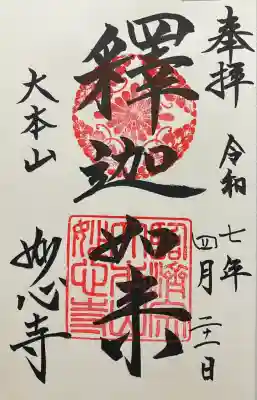 奉拝
令和七年
四月二十一日
釋迦如来
大本山
妙心寺